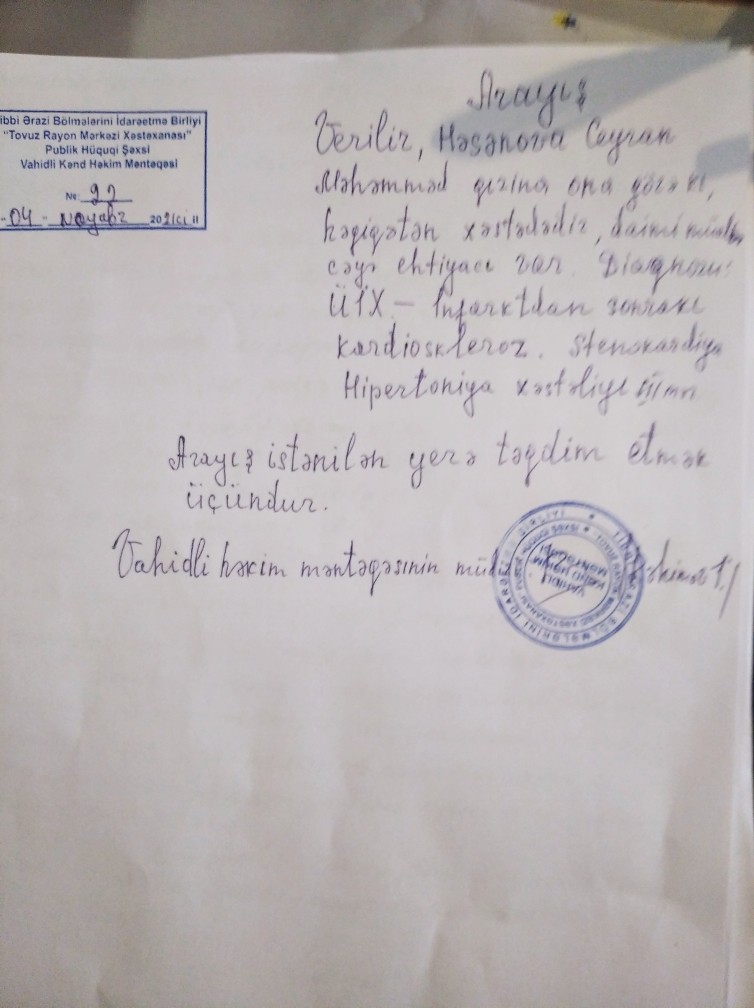 Arayış
ibbi Ərazi Bölmələrini İdarəetmə Birliyi
"Tovuz Rayon Mərkəzi Xəstəxanası"
Publik Hüquqi Şəxsi
Vahidli Kənd Həkim Məntəqəsi
№: 22
"04" Noyabr 2021ci il
Verilir, Həsənova Ceyran
Məhəmməd qızına ona görəki,
həqiqətən xəstədədir, daimi
cəyə ehtiyacı var. Diaqnozu:
ÜİX – İnfarktdan sonrakı
Kardioskleroz. Stenokardiya
Hipertoniya xəstəliyi III mən
Arayış istənilən yerə təqdim etmək
üçündür.
Vahidli həkim məntəqəsinin
VAHİDLİ KƏND HƏKİM MƏNTƏQƏSİ